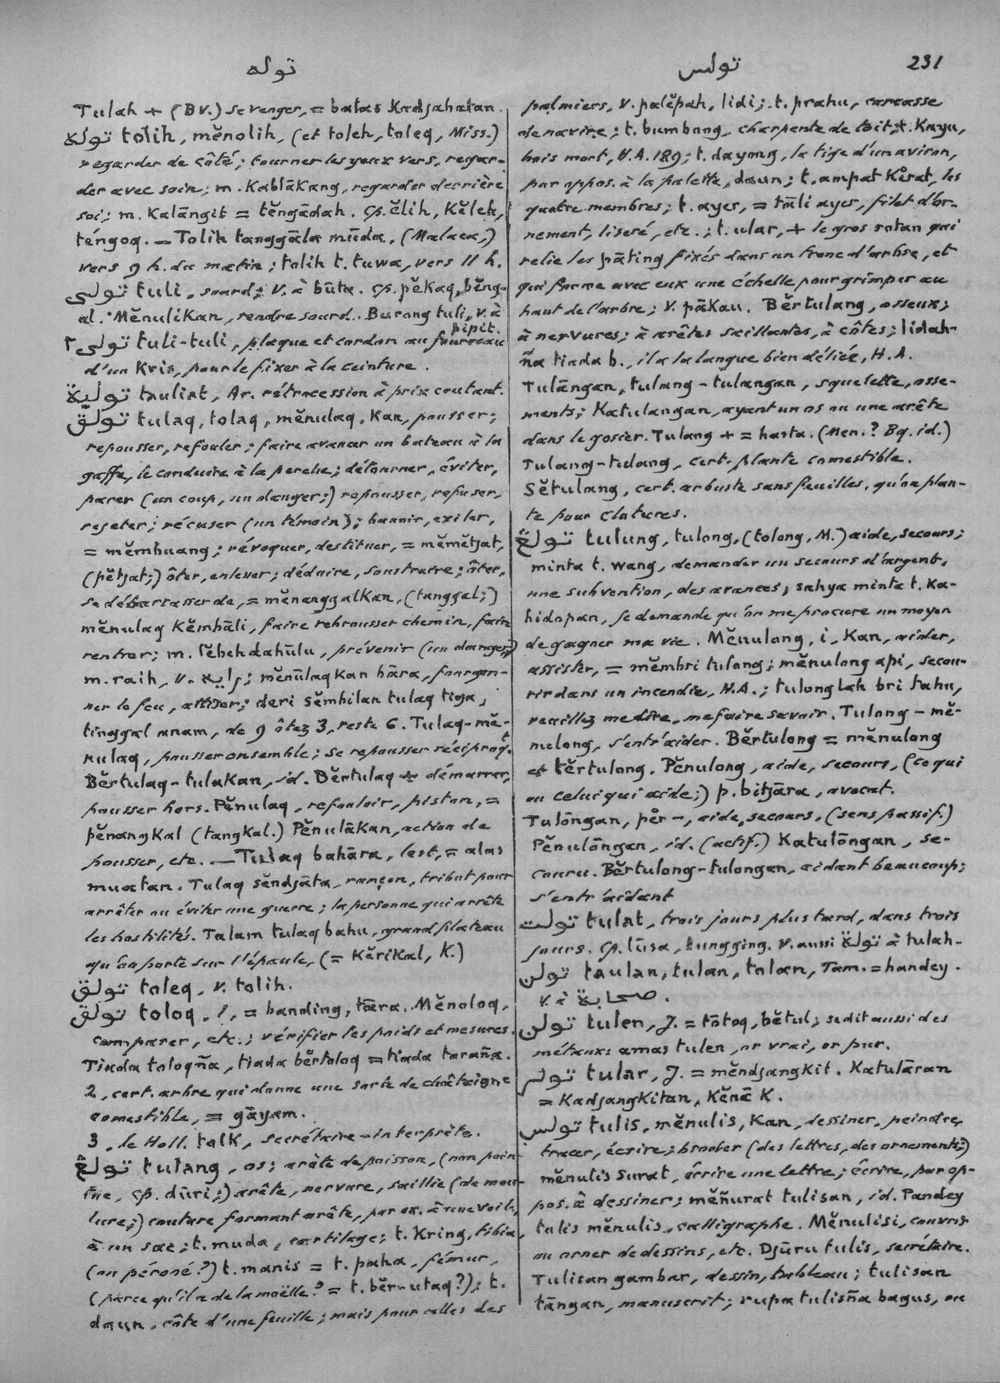 توله
تولس
231
Tulah + (BV.) se venger, = balas Kadjahatan.
توله tolih, mĕnolih, (et toleh, toleq, Miss.)
regarder de côté; tourner les yeux vers, regar-
der avec soin; m. Kablākang, regarder derrière
soi; m. Kalāngit = tĕngādah. Cp. ĕlih, Kĕleh,
téngoq. — Tolih tanggāla mūda, (Malaca,)
vers 9 h. du matin; tolih t. tuwa, vers 11 h.
تولي tuli, sourd; V. à būta. Cp. pĕkaq, bĕng-
al. Mĕnuli Kan, rendre sourd. Burong tuli, v. à
pipit.
تولي٢ tuli-tuli, plaque et cordon au fourreau
d'un Kris, pour le fixer à la ceinture.
تولية tauliat, Ar. rétrocession à prix coutant.
تولق tulaq, tolaq, mĕnulaq, Kan, pousser;
repousser, refouler; faire avancer un bateau à la
gaffe, le conduire à la perche; détourner, éviter,
parer (un coup, un danger;) repousser, refuser,
rejeter; récuser (un témoin); bannir, exiler,
= mĕmbuang; révoquer, destituer, = mĕmĕtjat,
(pĕtjat;) ôter, enlever; déduire, soustraire; ôter,
se débarrasser de, = mĕnanggalKan, (tanggal;)
mĕnulaq Kĕmbāli, faire rebrousser chemin, faire
rentrer; m. lĕbeh dahūlu, prévenir (un danger;)
m. raih, v. رايه; mĕnūlaqKan bāra, fourgon-
ner le feu, attiser; deri sĕmbilan tulaq tiga,
tinggal anam, de 9 ôtez 3, reste 6. Tulaq-mĕ-
nulaq, pousser ensemble; se repousser réciproqt.
Bĕrtulaq-tulaKan, id. Bĕrtulaq démarrer,
pousser hors. Pĕnulaq, refouloir, piston, =
pĕnangKal (tangKal.) Pĕnulākan, action de
pousser, etc. — Tulaq bahāra, lest, = alas
muatan. Tulaq sĕndjāta, rançon, tribut pour
arrêter ou éviter une guerre; la personne qui arrête
les hostilités. Talam tulaq bahu, grand plateau
qu'on porte sur l'épaule, (= KĕriKal, K.)
تولق toleq, v. tolih.
تولق toloq, 1, = banding, tāra. Mĕnoloq,
comparer, etc.; vérifier les poids et mesures.
Tiada toloqña, tiada bĕrtoloq = tiada taraña.
2, cert. arbre qui donne une sorte de châtaigne
comestible, = gāyam.
3, le Holl. tolk, secrétaire-interprète.
تولڠ tulang, os; arête de poisson, (non poin-
tue, cp. dūri;) arête, nervure, saillie (de mou-
lure;) couture formant arête, par ex. à une voile,
à un sac; t. muda, cartilage; t. Kring, tibia
(ou péroné?) t. manis = t. paha, fémur,
(parce qu'il a de la moëlle? = t. bĕr-utaq?); t.
daun, côte d'une feuille; mais pour celles des
palmiers, v. palĕpah, lidi; t. prahu, carcasse
de navire; t. bumbong, charpente de toit; t. Kayu,
bois mort, H.A. 189; t. dayong, la tige d'un aviron,
par oppos. à la palette, daun; t. ampat Kĕrat, les
quatre membres; t. ayer, = tāli ayer, filet d'or-
nement, liseré, etc.; t. ular, + le gros rotan qui
relie les pāting fixés dans un tronc d'arbre, et
qui forme avec eux une échelle pour grimper au
haut de l'arbre; V. pākau. Bĕrtulang, osseux;
à nervures; à arêtes saillantes, à côtes; lidah-
ña tiada b., il a la langue bien déliée, H.A.
Tulāngan, tulang-tulangan, squelette, osse-
ments; Katulangan, ayant un os ou une arête
dans le gosier. Tulang + = hasta. (Men.? Bg. id.)
Tulang-tulang, cert. plante comestible.
Sĕtulang, cert. arbuste sans feuilles, qu'on plan-
te pour clotures.
تولڠ tulung, tulong, (tolong, M.) aide, secours;
minta t. wang, demander un secours d'argent,
une subvention, des avances; sahya minta t. Ka-
hidopan, je demande qu'on me procure un moyen
de gagner ma vie. Mĕnulong, i, Kan, aider,
assister, = mĕmbri tulong; mĕnulong api, secou-
rir dans un incendie, H.A.; tulong lah bri tahu,
veuillez me dire, me faire savoir. Tulong-mĕ-
nulong, s'entr'aider. Bĕrtulong = mĕnulong
et tĕrtulong. Pĕnulong, aide, secours, (ce qui
ou celui qui aide;) p. bitjāra, avocat.
Tulōngan, pĕr-, aide, secours, (sens passif.)
Pĕnulōngan, id. (actif.) Katulōngan, se-
couru. Bĕrtulong-tulongan, aidant beaucoup;
s'entr'aidant
تولت tulat, trois jours plus tard, dans trois
jours. Cp. lūsa, tungging. V. aussi تولة à tulah.
تولن taulan, tulan, tolan, Tam. = handey.
v. à صحابة.
تولن tulen, J. = tōtoq, bĕtul; se dit aussi des
métaux: amas tulen, or vrai, or pur.
تولر tular, J. = mĕndjangkit. Katulāran
= Kadjangkitan, Kĕnā K.
تولس tulis, mĕnulis, Kan, dessiner, peindre,
tracer, écrire; broder (des lettres, des ornements;)
mĕnulis surat, écrire une lettre; écrire, par op-
pos. à dessiner; mĕñurat tulisan, id. Pandey
tulis mĕnulis, calligraphe. Mĕnulisi, couvrir
ou orner de dessins, etc. Djūru tulis, secrétaire.
Tulisan gambar, dessin, tableau; tulisan
tāngan, manuscrit; rupa tulisña bagus, ou